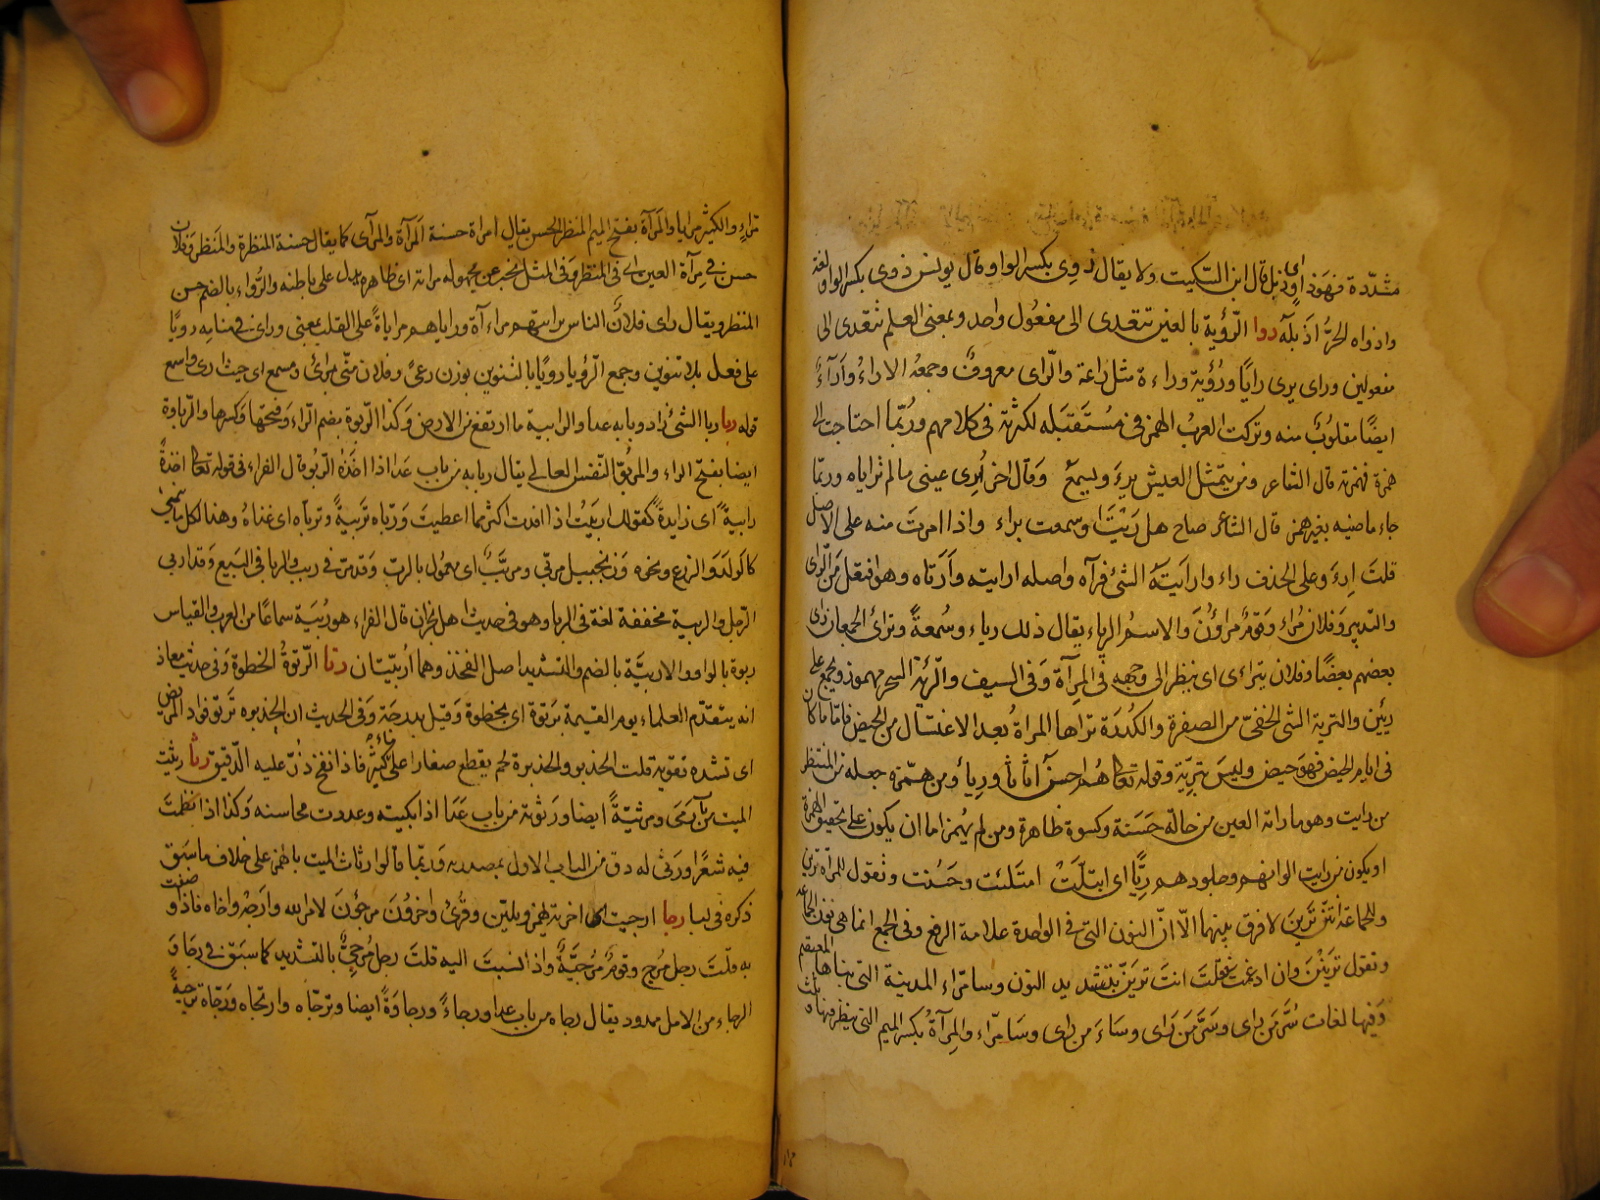 مشدّدة فهو ذاوٍ اى ذبل قال ابن السّكيت ولا يقال ذوِى بكسر الواو وقال يونس ذوى بكسر الواو لغة
واذواه الحرُّ اذبله روا الرّؤية بالعين تتعدى الى مفعُول واحد وبمعنى العلم تتعدى الى
مفعولين وراى يرى رايًا ورُؤية وراءة مثل راعة والرّاى معروفٌ وجمعهُ الاراءُ وأرآءٌ
ايضًا مقلُوبٌ منه وتركت العربُ الهمز فى مُستَقبَله لكثرته فى كلامهم ورُبّما احتاجت الى
همزة فهمزته قال الشاعر ومن يتمثل العيش يرءَ ويسمعُ وقال اخر اُرِى عينى ما لم ترأياه وربمّا
جاء ماضيه بغير همز قال الشاعر صاح هل رَيْتَ او سمعت براء واذا امرتَ منه على الاصل
قلتَ اِرءَ وعلى الحذف راء وارايتهُ الشئ فرآه واصله ارايته وأرتاه وهو افتعل من الرّاى
والتدبير وفلان مُراء وقومٌ مراؤنَ والاسمُ الرياء يقال ذلك رياء وسُمعةً وترائ الجمعان راى
بعضهم بعضًا وفلان يتراءى اى ينظر الى وجهه فى المِرآة وَفى السيف والرّئة السحر مهموز ويجمع على
رئين والترية الشى الخفىّ من الصفرة والكُدرَة تراها المراةُ بَعد الاغتسال من الحيض فامّا ما كان
فى ايام الحيض فهو حيض وليسَ بتريّة وقوله تعالى هُم احسنُ اثاثًا ورِياءً ومن همَزه جعله من المنظر
من رايت وهو ما راته العين من حالة حَسَنَة وكسوة ظاهرة ومن لم يُهمز اما ان يكون على تخفيف الهمزة
او يكون من رايت الوانهم وجلودهم ريًّا اى ابتلّتْ امتَلئت وحَسُنت وتقول للمراة ترين
وللجماعة انتنّ تَرَينَ لا فرق بينهما الّا انّ النون التى فى الواحدة علامة الرفع وفى الجمع انما هى نون الجماعة
وتقول ترَيْنَن وان ادغمتَ قلتَ انتَ ترَينّ بتشديد النون وسامرّاء المدينة التى بناها المعتصم
وفيها لغات سُرَّ مَن راى وسَرَّ مَن رَاى وساءَ من راى وسَامرّاء والمِرآةُ بكسر الميم التى ينظر فيها وثلث
مَراءٍ والكثير مرايا والمَرآة بفتح الميم المنظر الحسن يقال امراة حسنة المَرآة والمرآى كما يقال حسنة المنظرة والمَنظر وفلان
حسن فى مِرآة العين اى فى المنظر وَفى المثل تخبر عن مجهوله مراته اى ظاهره يدل على باطنه والرُّواء بالضم حسن
المنظر ويقال راى فلانٌ الناس يرائيهم مراءآة وراياهم مراياةً على القلب بمعنى وراى فى منامِه رويًا
على فعل بلا تنوين وجمع الرّؤيا رويًا بالتنوين بوزن رعىً وفلان منّى مرائ ومسمع اى حيث ارى واسمع
قوله ربا ربا الشئ زاد وبابه عدا والرابية ما ارتفع من الارض وكذا الرّبوة بضم الرّاء وَفتحها وكسرها والرّباوة
ايضا بفتح الراء والربوُ النّفس العالى يقال ربا به من باب عَدا اذا اخذه الرّبوُ قال الفراء فى قوله تعالى اخذةً
رابيةً اى زايدةً كقولك اربَيْتُ اذا اخذت اكثر مما اعطيتَ وربّاه تربيةً وتربّاه اى غذاهُ وهذا لكل ما ينمى
كالولد والزرع ونحوه وزنجبيل مربّى ومربَّبٌ اى معمُول بالرب وقد مرّ فى ربب والربا فى البَيع وقد اربى
الرّجل والربية مخففة لغة فى الربا وهو فى حديث اهل نجران قال الفراء هو رُبيَة سماعًا من العرب والقياس
ربوة بالواو والاربيّة بالضم والتشديد اصل الفخذ وهما اُربيّتان رتا الرّتوةُ الخطوة وَفى حديث معاذ
انه يتقدّم العلماء يوم القيمة برَتوة اى بخطوة وَقيل بدرجَة وَفى الحديث ان الحزيره ترتو فواد المريض
اى تشده تقويه قلت الحذيرة لحم يقطع صغارا على ماء كثير فاذا نضج ذُرّ عليه الدّقيق رثا رثيت
الميت من باب رَمَى ومرثيّةً ايضا ورثوته من باب عَدَا اذا بكيته وعددت محاسنه وَكذا اذا نظمت
فيه شعرًا ورثى له رق من الباب الاول بمصدريه وَربّما قالوا رثات الميت بالهمز على خلاف ما سَبَق
ذكره فى لبا رجا ارجيت الامر اخرته بهمز ويليّن وقرئ واخرونَ مرجؤنَ لامر الله وأرجه واخاه فاذا وصفت
به قلتَ رجل مُرجٍ وقومٌ مُرجيّةٌ واذا نسبتَ اليه قلتَ رجل مُرجىٌّ بالتشديد كما سبَق فى رجا وَ
الرجاء من الامل ممدود يقال رجاه من باب عدا ورجاءً ورجاوَةً ايضا وترجّاه وارتجاه ورَجّاه ترجيةً